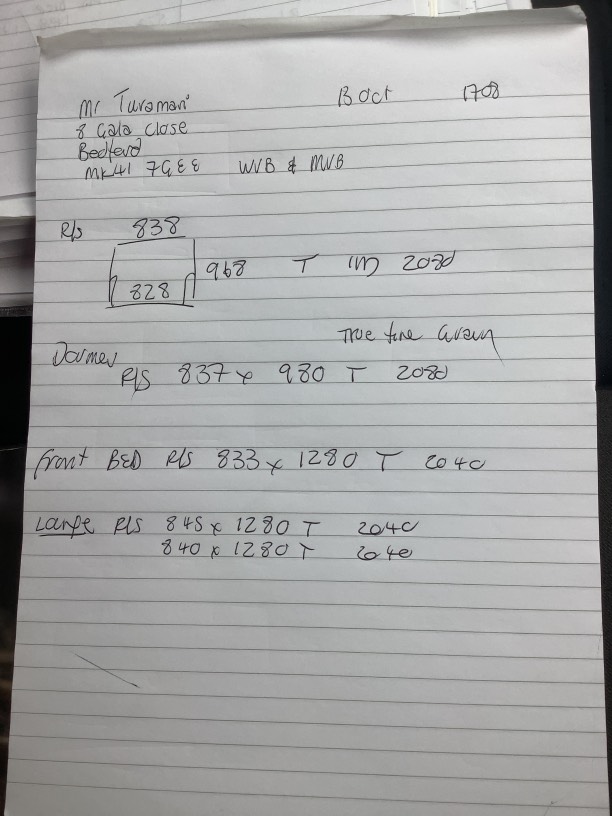 Mr Turaman 13 Oct 1708
8 Gala Close
Bedford
MK41 7GEE WVB & MVB
R/s 838
968 T IM 2080
828
True fine Grain
Dormer
R/S 837 x 980 T 2080
Front BED R/S 833 x 1280 T 2040
Large R/S 845 x 1280 T 2040
840 x 1280 T 2040